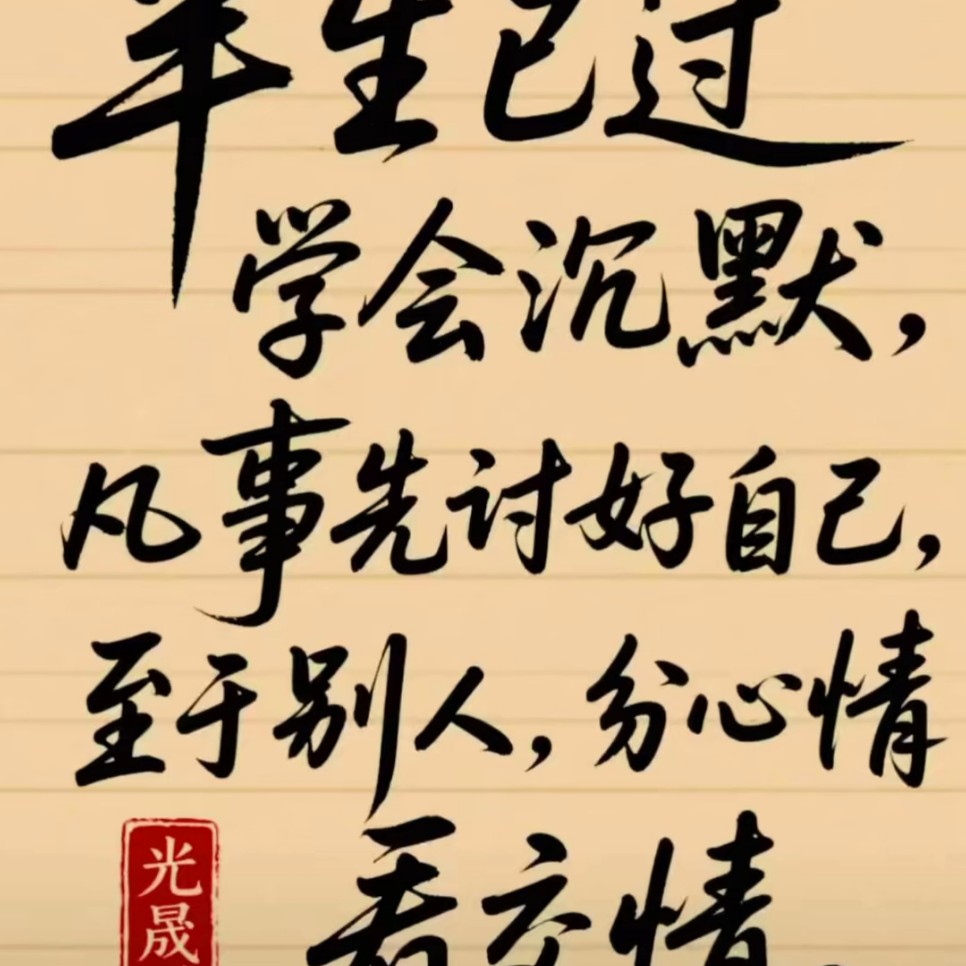 半生已过
学会沉默，
凡事先讨好自己，
至于别人，分心情
看交情。
光晟